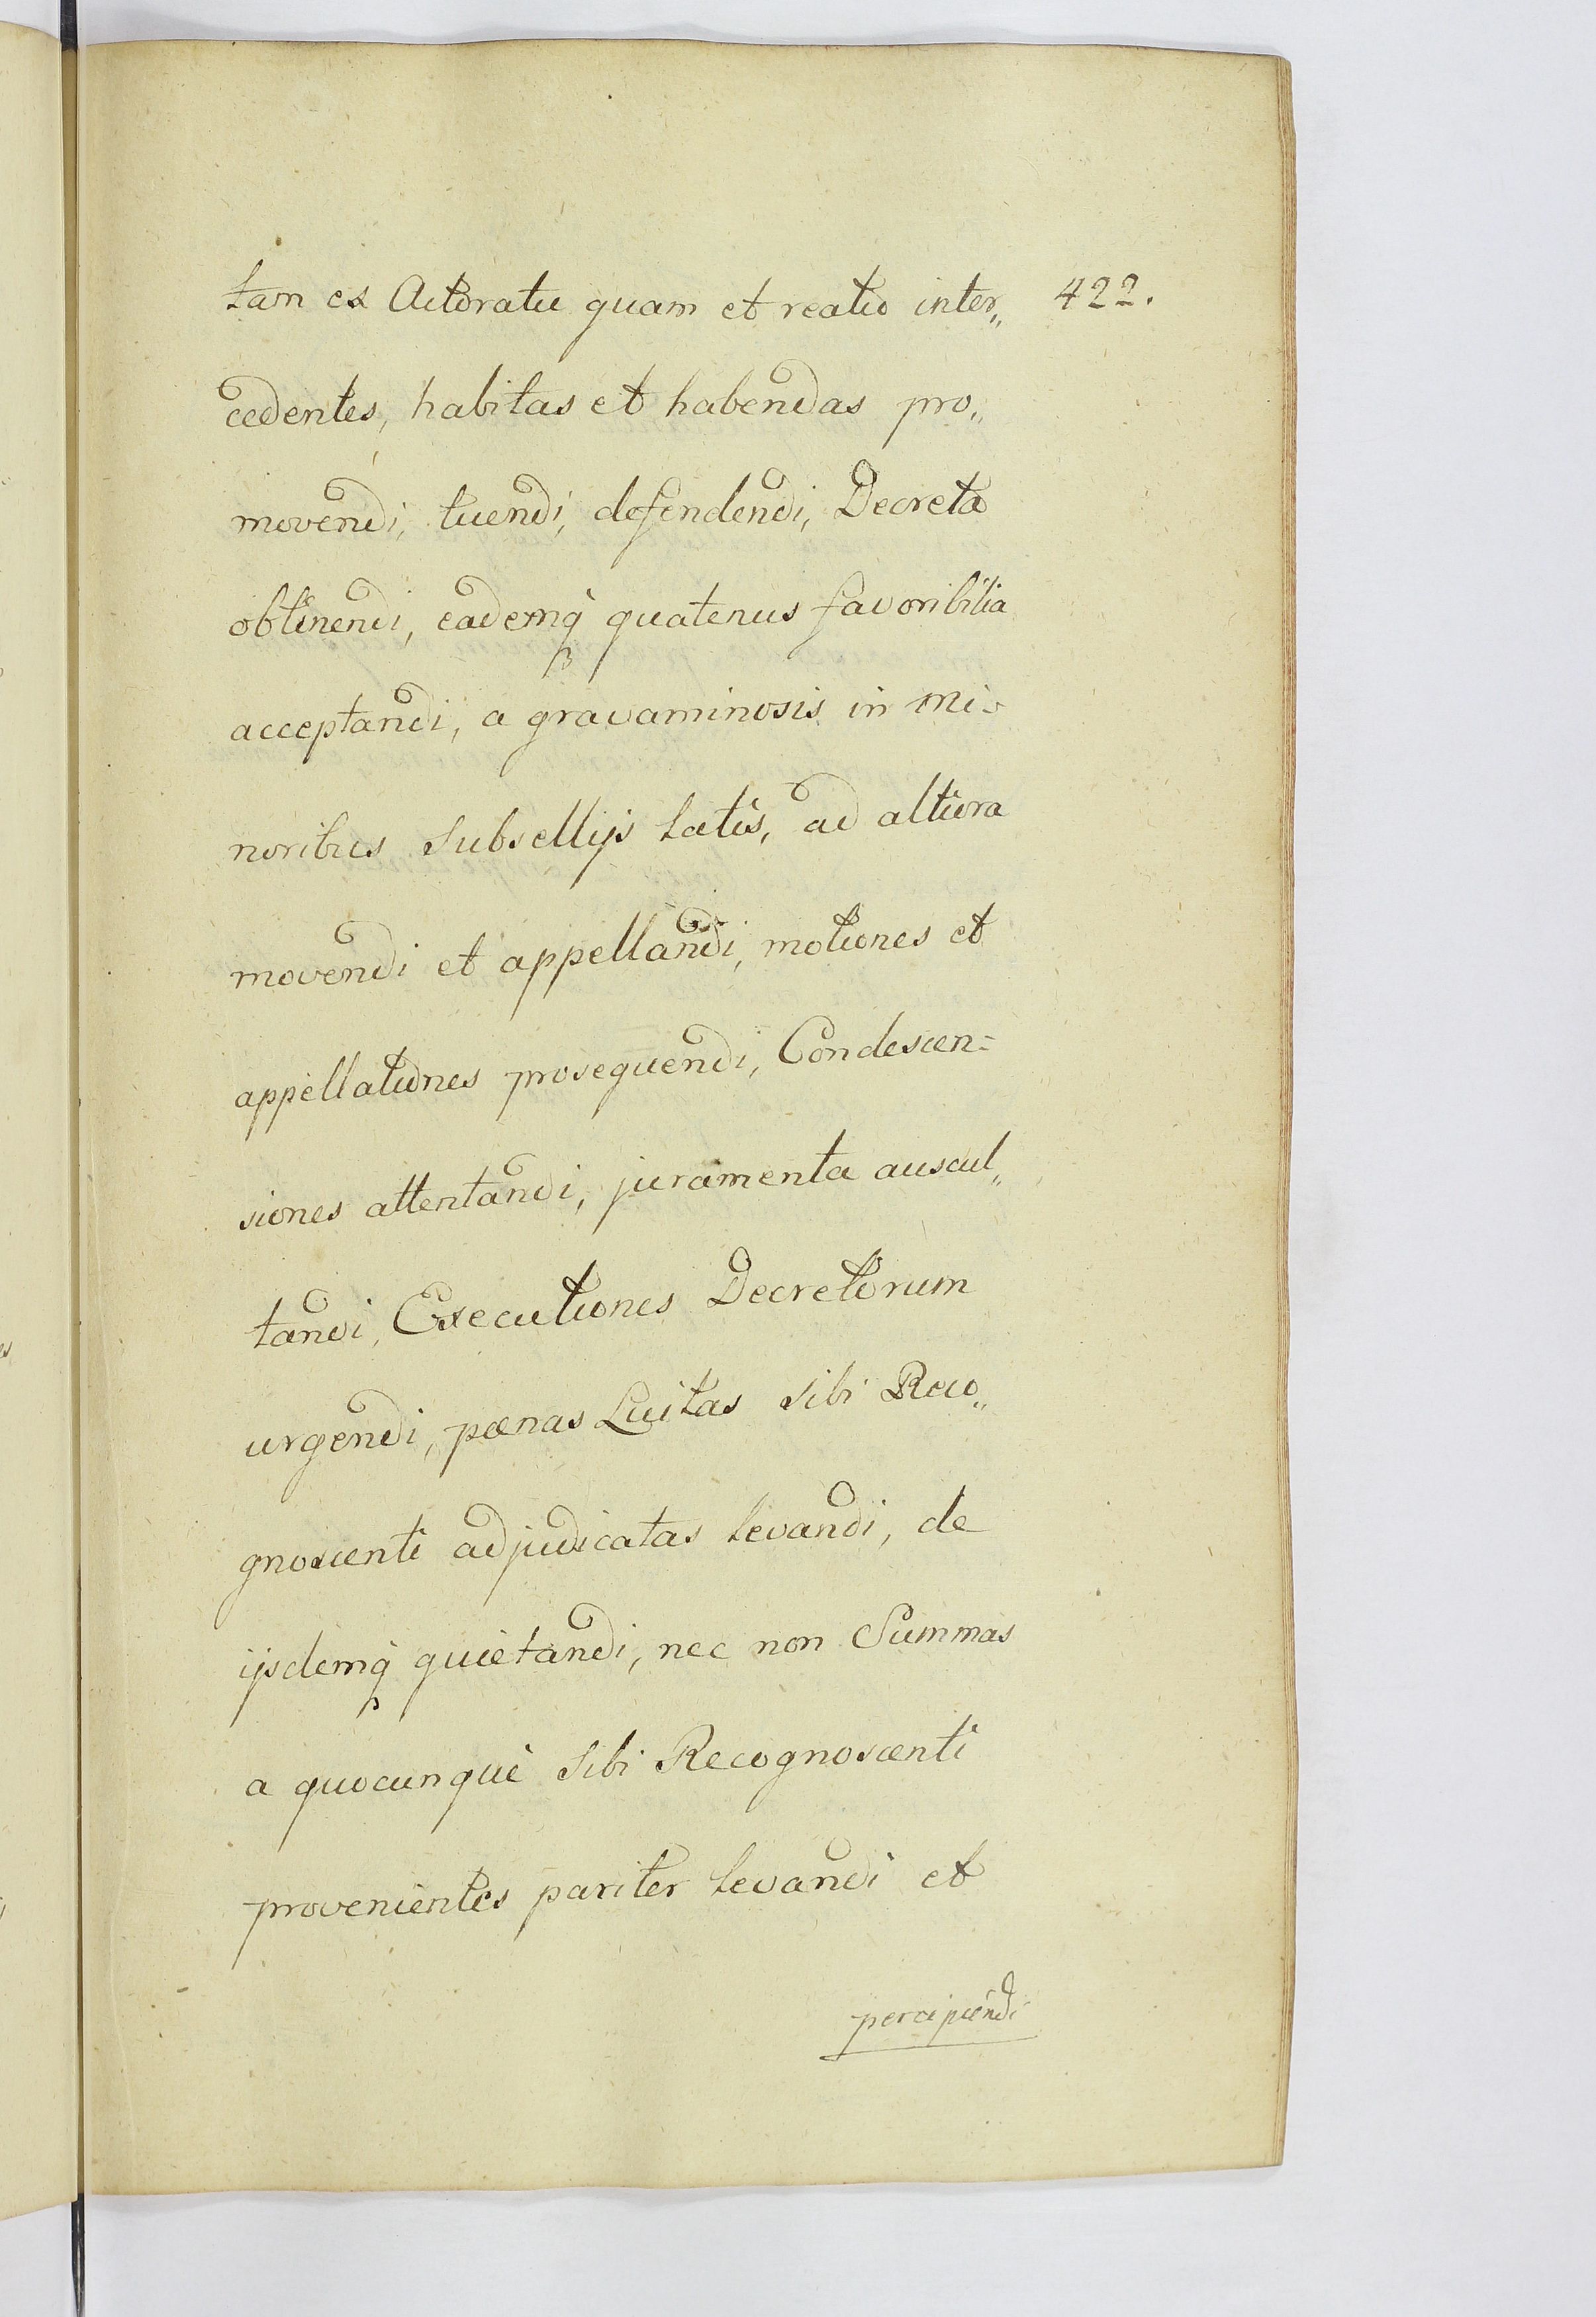 tam ex Actoratu quam et reatu inter„ 422.
cedentes, habitas et habendas pro„
movendi, tuendi, defendendi, Decreta
obtinendi, eademq́ quatenus favoribilia
acceptandi, a gravaminosis in mi-
noribus Subsellijs latis, ad altiora
movendi et appellandi, motiones et
appellationes prosequendi, Condescen=
siones attentandi, juramenta auscul„
tandi, Executiones Decretorum
urgendi, pænas Luitas sibi Reco„
gnoscenti adjudicatas levandi, de
ijsdemq́ quietandi, nec non Summas
a quocunque sibi Recognoscenti
provenientes pariter levandi et
percipiendi